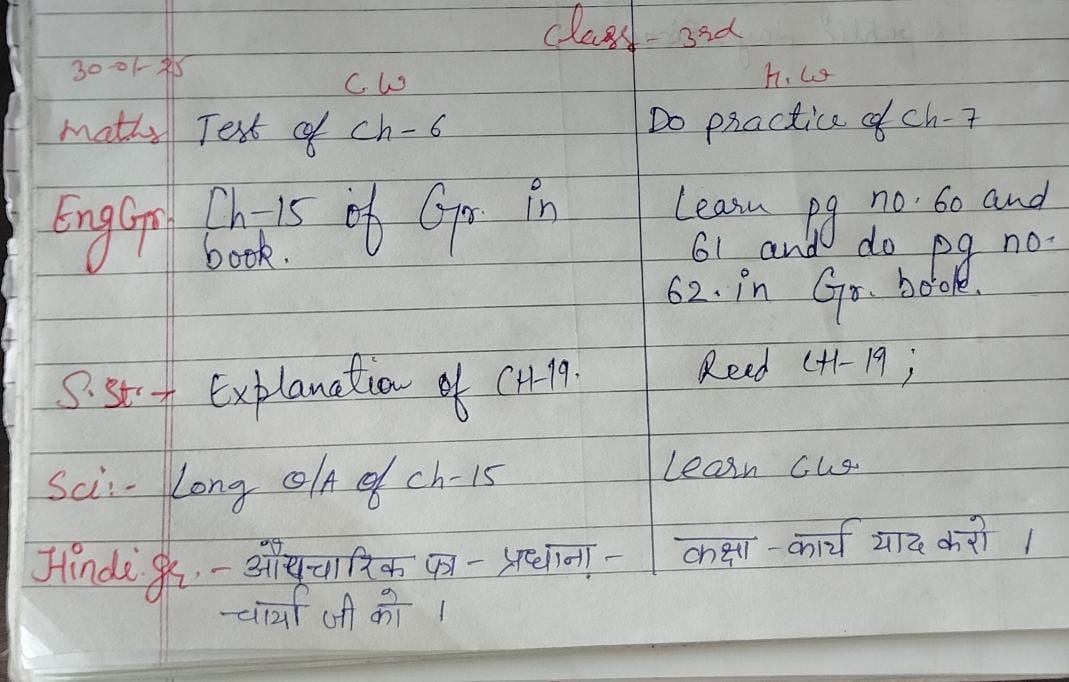 Class - 3rd
30-01-25
C W H.W
Maths Test of Ch-6 Do practice of Ch-7
Eng Gr. Ch-15 of Gr. in Learn pg no. 60 and
book. 61 and do pg no-
62. in Gr. book.
S.St. → Explanation of CH-19. Reed CH-19 ;
Sci:- Long Q/A of Ch-15 Learn CW
Hindi.gr. - औपचारिक पत्र - प्रधाना - कक्षा - कार्य याद करो ।
-चार्या जी को ।